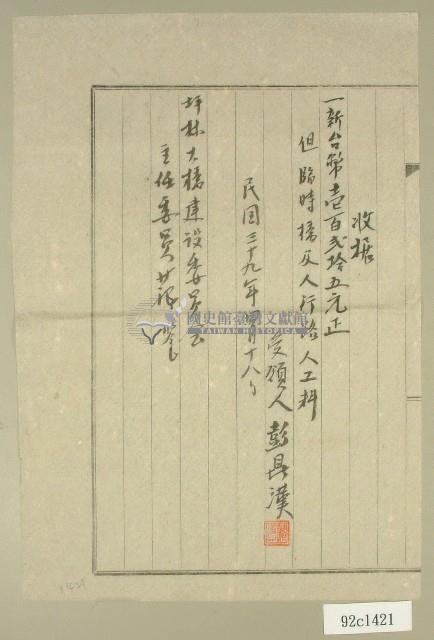 收据
一新台幣壹百弍拾五元正
但臨時橋及人行路人工料
民國三十九年 月十八日
受領人 彭昌漢
坪林大橋建設委員會
主任委員
國史館臺灣文獻館
TAIWAN HISTORICA
92c1421